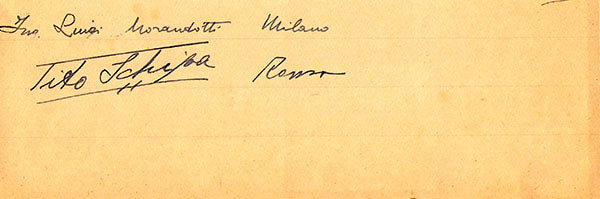 Ing. Luigi Morandotti Milano
Tito Schipa Roma